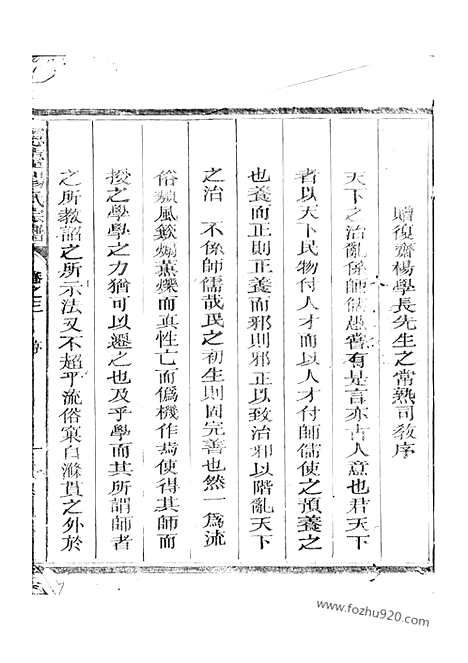 贈復齋楊學長先生之常熟司教序
天下之治亂係師儒愚嘗有是言亦古人意也君天下
者以天下民物付人才而以人才付師儒使之預養之
也養而正則正養而邪則邪正以致治邪以階亂天下
之治 不係師儒哉民之初生則固完善也然一爲流
俗頹風籨煽薰爍而真性亡而僞機作焉使得其師而
授之學學之力猶可以遷之也及乎學而其所謂師者
之所教詔之所示法又不超乎流俗裒白滌貰之外於
楊氏宗譜
卷之三
www.fozhu920.com